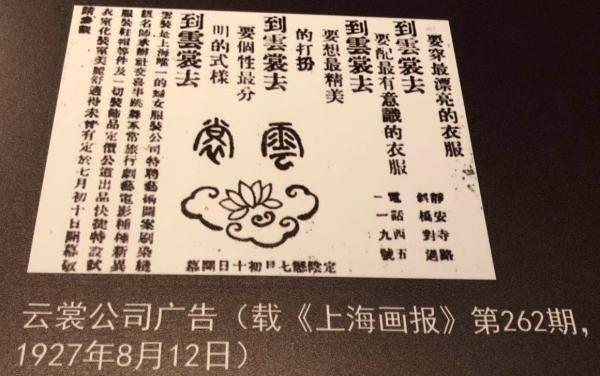 要穿最漂亮的衣服
到雲裳去
要配最有意識的衣服
到雲裳去
要想最精美
的打扮
到雲裳去
要個性最分
明的式樣
到雲裳去
雲裳
靜安寺路
斜橋對過
電話西五
一一九號
定陰曆七月初十日開幕
雲裳是上海唯一的婦女服裝公司特聘藝術圖案刷染縫
紉名師承辦社交喜事跳舞家常旅行劇藝電影種種新異
服裝鞋帽等件及一切裝飾品定價公道出品快捷特設試
衣室化裝室美麗舒適得未曾有定於七月初十日開幕敬
請參觀
云裳公司广告（载《上海画报》第262期，
1927年8月12日）